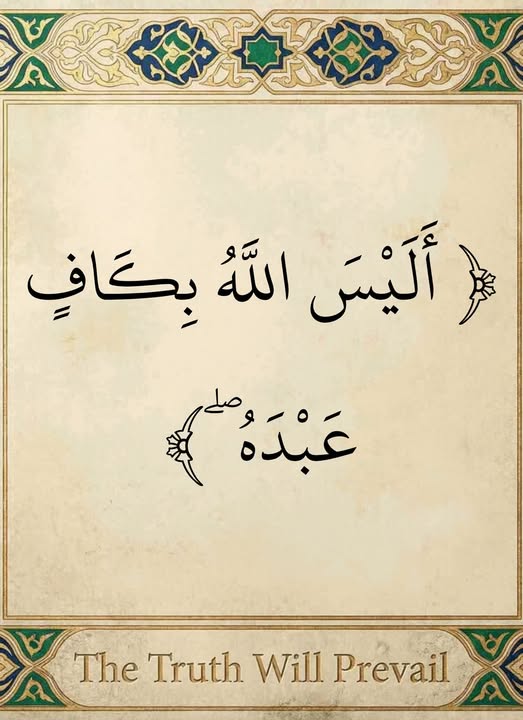 ﴿ أَلَيْسَ اللَّهُ بِكَافٍ
عَبْدَهُ ۖ ﴾
The Truth Will Prevail